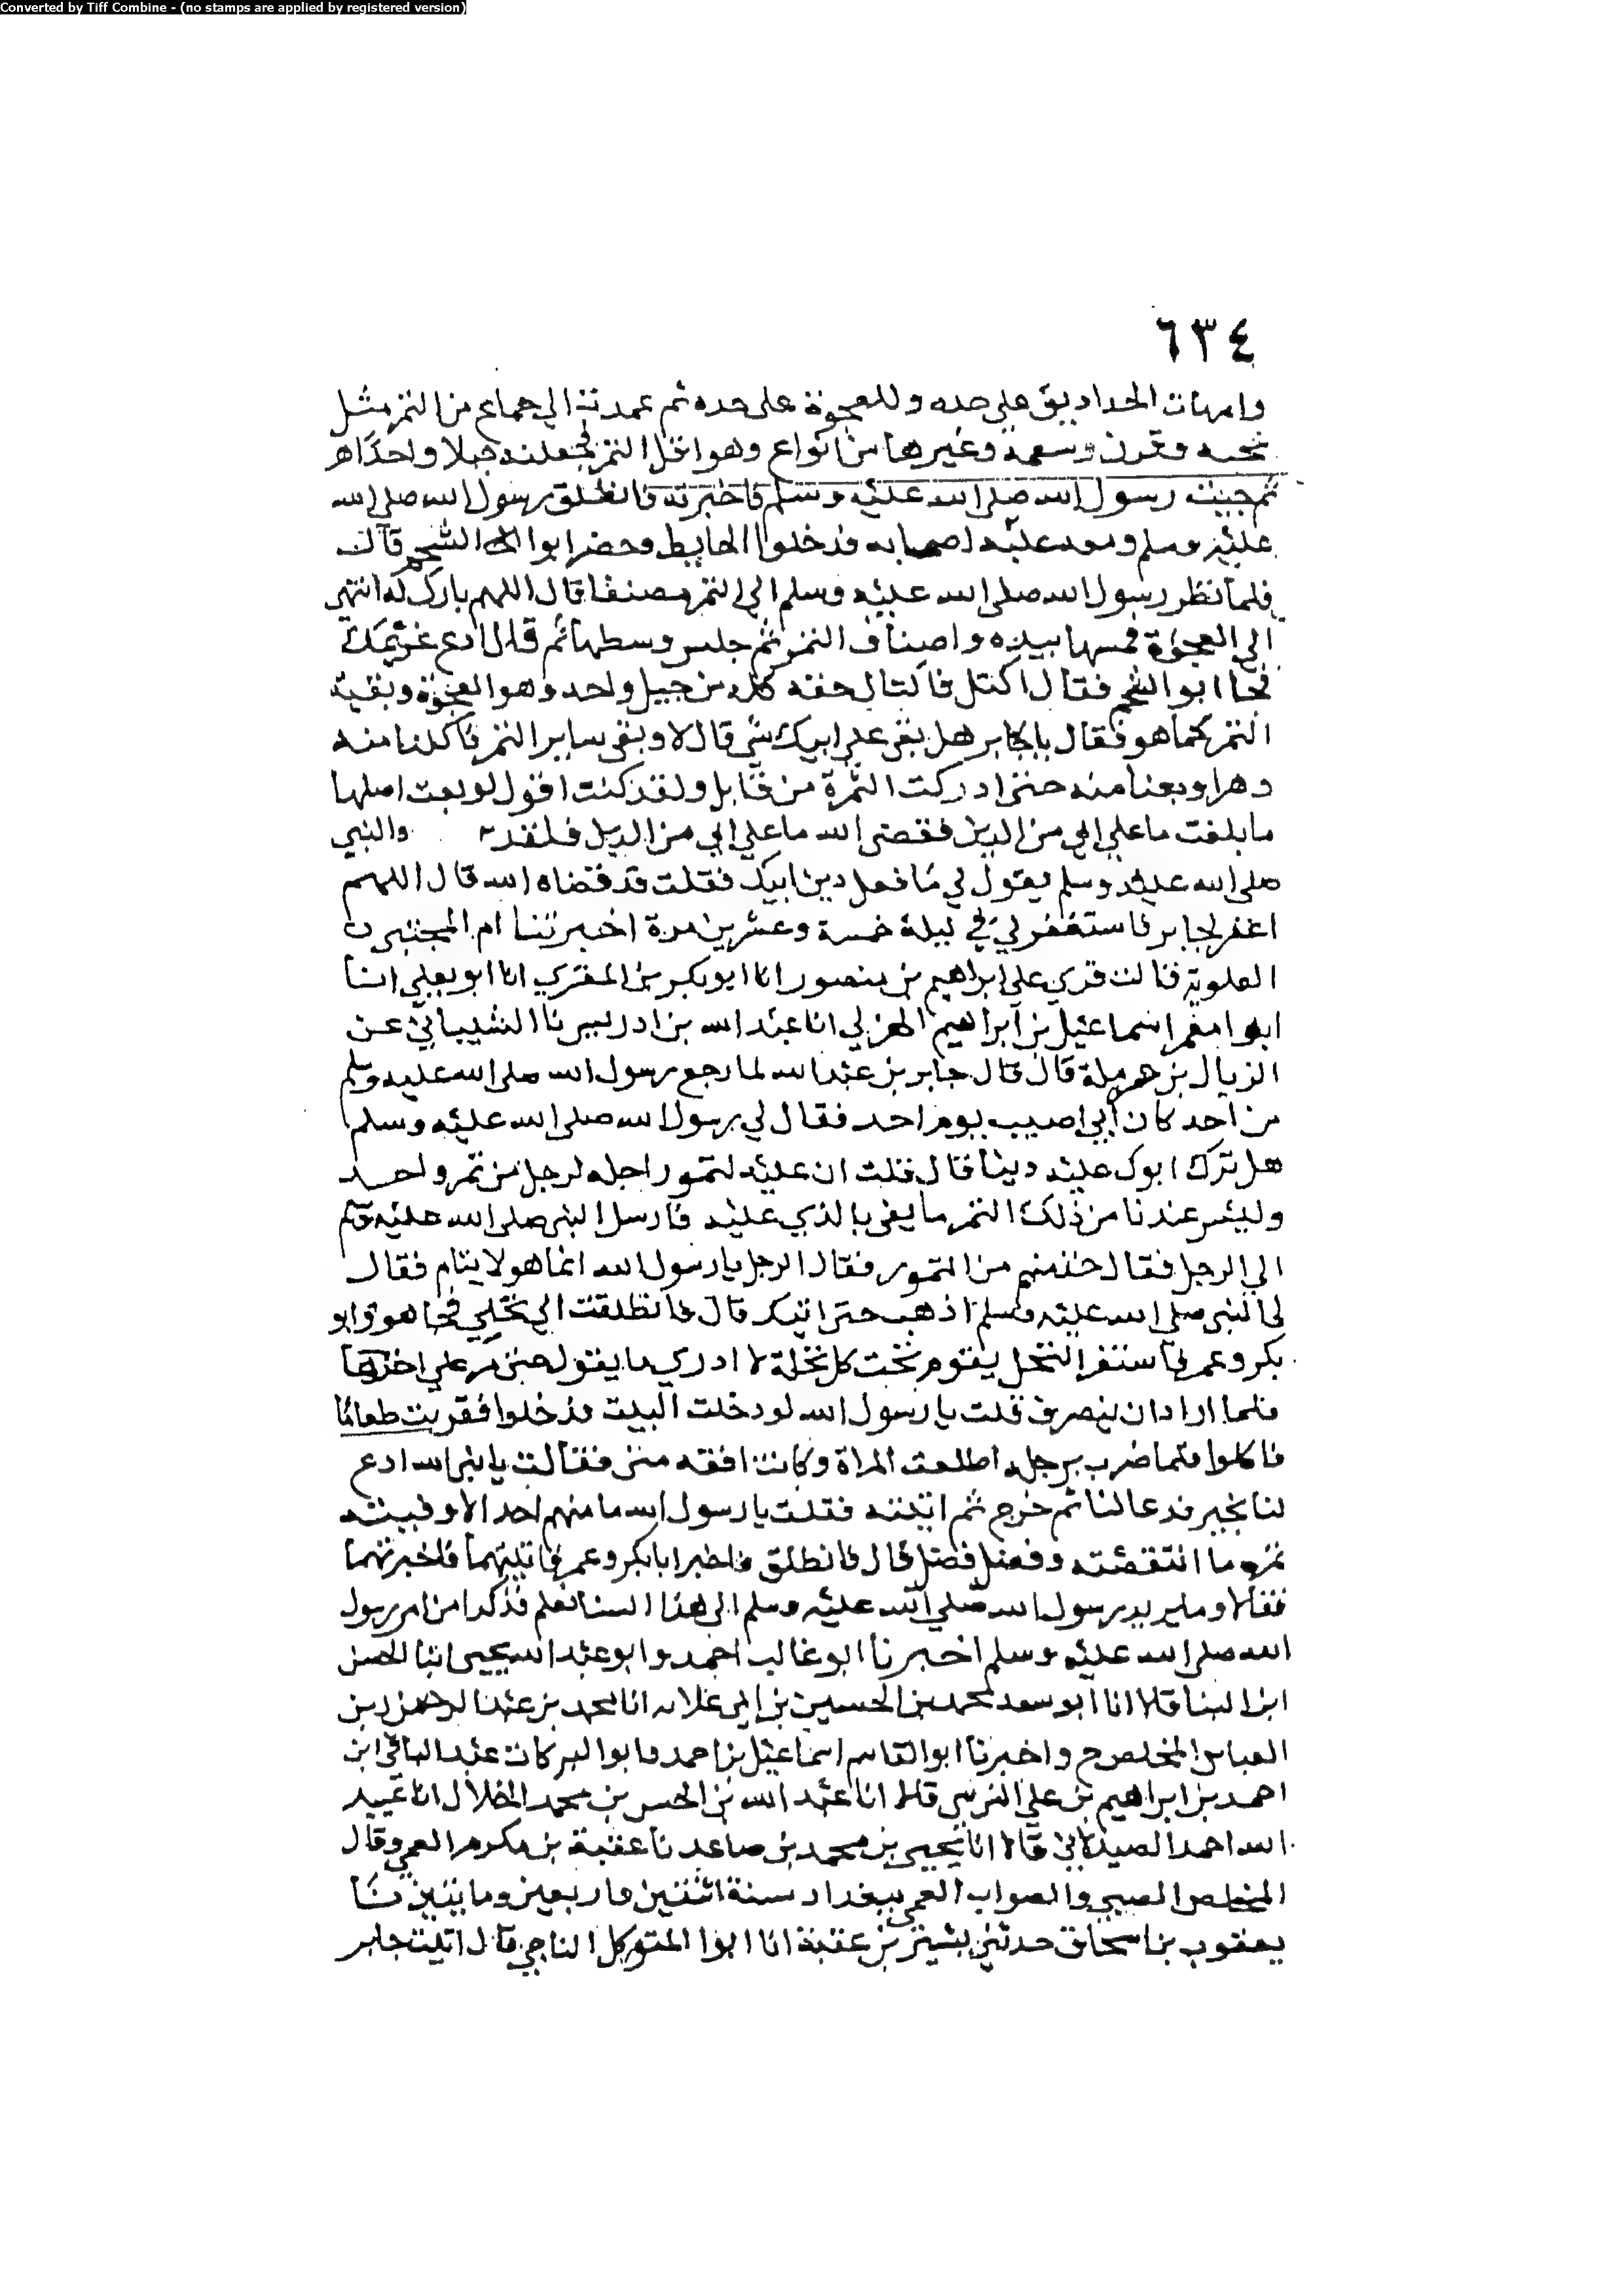 Converted by Tiff Combine - (no stamps are applied by registered version)
٦٣٤
وامهات الحداديق على حده وللعجوة على حده ثم عمدت الى جماع من التمر مثل
نخبه وقرن وسعمه وغيرها من انواع وهو اقل التمر فجعلته جبلا واحدا هر
ثم جيت رسول الله صلى الله عليه وسلم فاخبرته فانطلق رسول الله صلى الله
عليه وسلم ومعه علية اصحابه فدخلوا الحايط وحضر ابوا الشحم قال
فلما نظر رسول الله صلى الله عليه وسلم الى التمر مصنفا قال اللهم بارك له انتهى
الى العجوة فمسها بيده واصناف التمر ثم جلس وسطها ثم قال ادع غريمك
فجا ابو الشحم فقال اكتل فاكتال حقه كله من جبل واحد وهو العجوة وبقية
التمر كما هو فقال يا جابر هل بقى على ابيك شي قال لا وبقى ساير التمر فاكلنا منه
دهرا وبعنا منه حتى ادركت الثمرة من قابل ولقد كنت اقول لو بعت اصلها
ما بلغت ما على ابي من الدين فقضى الله ما على ابي من الدين فلقد والنبي
صلى الله عليه وسلم يقول لي ما فعل دين ابيك فقلت قد قضاه الله قال اللهم
اغفر لجابر فاستغفر لي في ليلة خمسة وعشرين مرة اخبرتنا ام المجتبى
العلوية قالت قري على ابراهيم بن منصور انا ابو بكر بن المقري انا ابو يعلى انا
ابوا معمر اسماعيل بن ابراهيم الهزلي انا عبد الله بن ادريس نا الشيباني عن
الزيال بن حرملة قال قال جابر بن عبد الله لما رجع رسول الله صلى الله عليه وسلم
من احد كان ابي اصيب يوم احد فقال لي رسول الله صلى الله عليه وسلم
هل ترك ابوك عليه دينا قال قلت ان عليه لتمور اجله لرجل من تمر واحد
وليس عندنا من ذلك التمر ما يفي بالذي عليه فارسل النبي صلى الله عليه وسلم
الى الرجل فقال خذ منهم من التمور فقال الرجل يا رسول الله انما هو لا يتام فقال
لي النبي صلى الله عليه وسلم اذهب حتى اتيك قال فانطلقت الى نخلي فجا هو وابو
بكر وعمر فاستقر النخل يقوم تحت كل نخلة لا ادري ما يقول حتى مر على اخرها
فلما ارادان ينصرف قلت يا رسول الله لو دخلت البيت فدخلوا فقربت طعاما
فاكلوا فلما ضرب برجله اطلعت المراة وكانت افقه منى فقالت يا نبي الله ادع
لنا بخير فدعا لنا ثم خرج ثم اتيته فقلت يا رسول الله ما منهم احد الا وفيته
تمره ما انتقصته وفضل فضل قال فانطلق فاخبر ابا بكر وعمر فاتيتهما فاخبرتهما
فقالا وما يريد رسول الله صلى الله عليه وسلم الى هذا السنا نعلم فذكرا من امر رسول
الله صلى الله عليه وسلم اخبرنا ابو غالب احمد وابو عبد الله يحيى ابنا الحسن
ابن البنا قالا انا ابو سعد محمد بن الحسين بن ابى علانه انا محمد بن عبد الرحمن بن
العباس المخلص ح واخبرنا ابو القاسم اسماعيل بن احمد وابو البركات عبد الباقى ابن
احمد بن ابراهيم بن علي النرسي قالا انا عبد الله بن الحسن بن محمد الخلال انا عبيد
الله احمد الصيدلاني قالا انا يحيى بن محمد بن صاعد نا عقبة بن مكرم العمى وقال
المخلص الصبي والصواب العمى ببغداد سنة اثنتين واربعين ومايتين نا
يعقوب بن اسحاق حدثني بشير بن عقبة انا ابوا المتوكل الناجي قال اتيت جابر